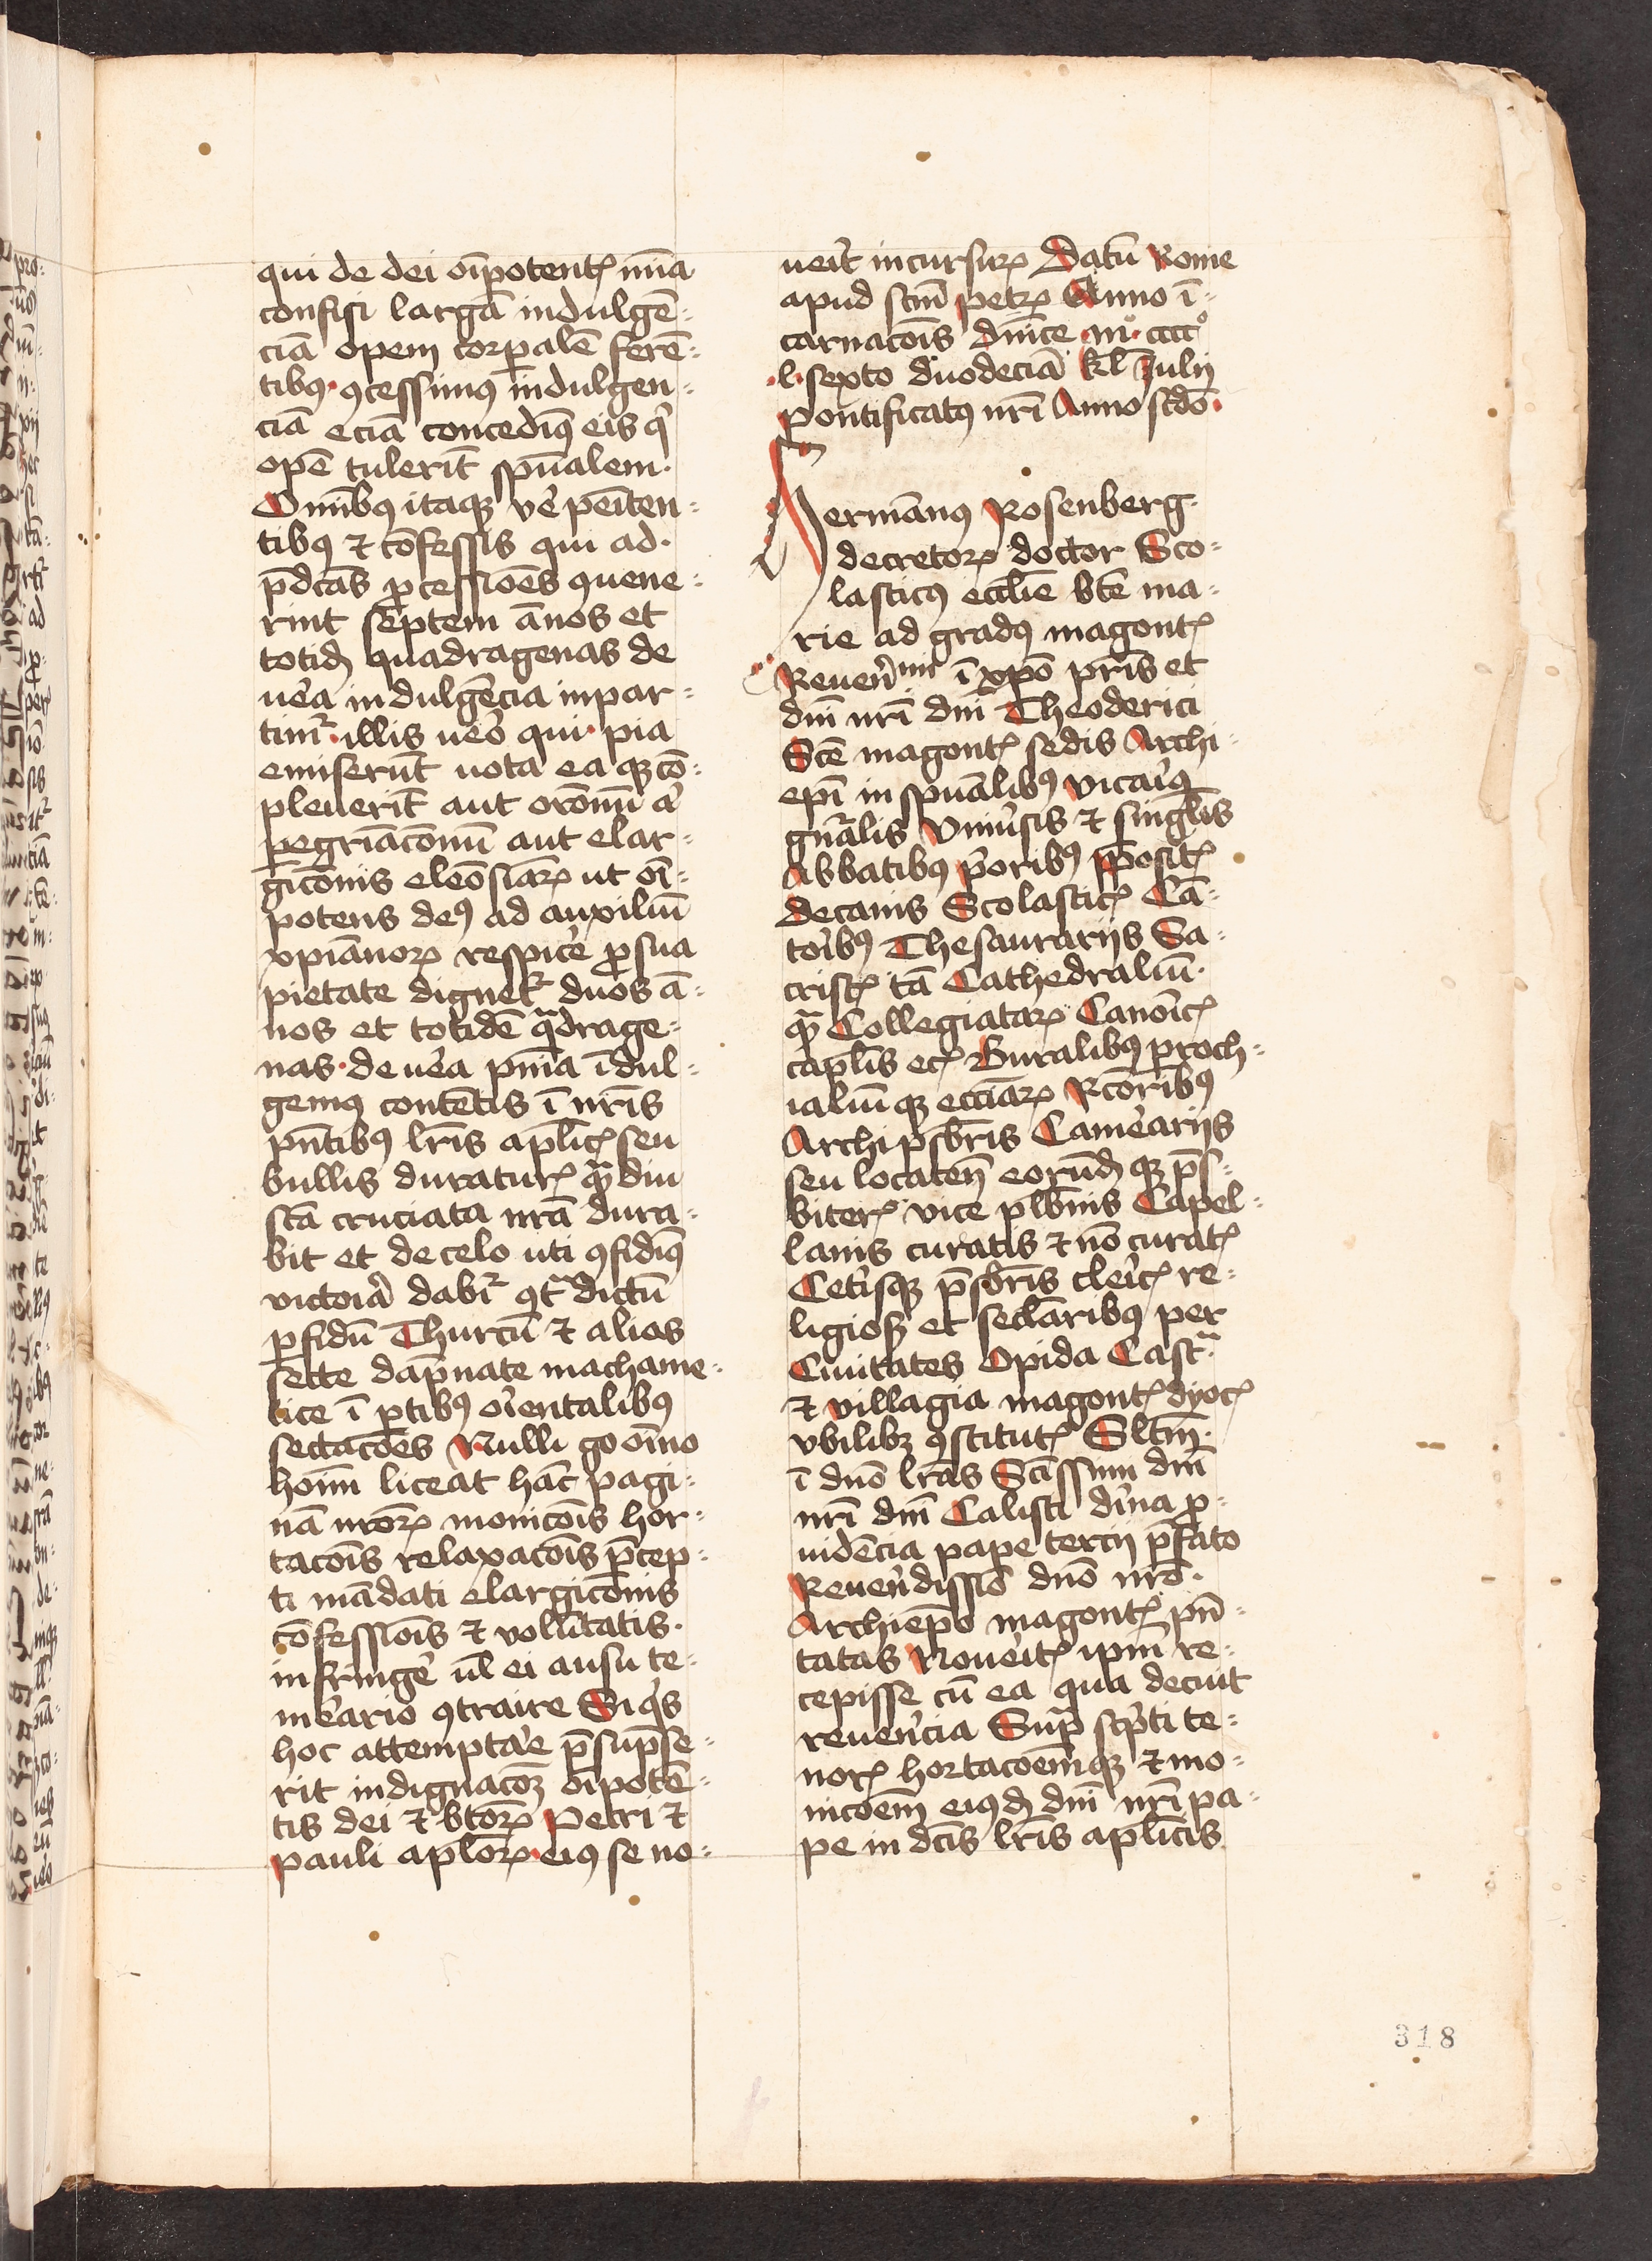 qui de dei oīpotentꝭ mīa
confisi largā indulgē-
ciā opem corꝑalē ferē-
tibꝰ ꝯcessimus indulgen-
ciā eciā concedimꝰ eis qͥ
opē tulerīt spūalem.
Omībꝰ itaqꝫ vē penitēn-
tibꝰ ⁊ cōfessis qui ad
p̄dcās ꝓcessiōes ꝯuene-
rint septem ānos et
totidꝫ quadragenas de
uēa indulgēcia inpar-
timꝛ illis ueō qui pia
emiserūt uota ea qꝫ cō-
pleuerīt aut orōnū
ꝑegriācōnū aut elar-
gicōnis eleōsīaꝝ ut oī-
potens deꝰ ad auxiliū
xp̄ianoꝝ respicē ꝓ sua
pietate dignetꝛ duos ā-
nos et totidē qͣdrage-
nas de uēa pn̄ia īdul-
gemꝰ contētis ī nr̄is
pn̄tibꝰ lr̄is aplicꝭ seu
bullis duraturꝭ qͣdiu
scā cruciata nr̄a dura-
bit et de celo uti ꝯfidimꝰ
victoiā dabiꝛ ꝯtͣ dictū
ꝑfidū Thurcū ⁊ alios
secte dāpnate machame-
tice ī ꝑtibꝰ oientalibꝰ
sectatōes Nulli go oīno
hoīm liceat hāc pagi-
nā nr̄oꝝ monicōis hor-
tacōis relaxacōis p̄cep-
ti mādati elargicōnis
cōfessiōis ⁊ volūtatis
infringē ul̄ ei ausu te-
meārio ꝯtraire Si qͥs
hoc attemptāe p̄sūpse-
rit indignacōꝫ oīpotē-
tis dei ⁊ btōꝝ Petri ⁊
pauli aplōꝝ eiꝰ se no-
ueīt incursuꝝ Datū Rome
apud scm̄ petꝝ Anno ī-
carnacōis dnīce mº ccccº
l sexto duodeciā kl̄ Julij
pontificatꝰ nr̄i Anno scd̄o
Hermānꝰ Rosenberg
decretoꝝ doctor Sco-
lasticꝰ ecclīe bt̄e ma-
rie ad gradꝰ magontꝭ
Reueñ ī xp̄o pr̄is et
dnī nr̄i dnī Theoderici
Scē magontꝭ sedis Archi-
ep̄i in spūalibꝰ vicaiꝰ
gn̄alis Vniūsis ⁊ singlīs
Abbatibꝰ pͥoribꝰ p̄positꝭ
decanis Scolasticꝭ Cā-
toībꝰ Thesaurarijs Sa-
cristꝭ tā Cathedraliū
qͣ Collegiataꝝ Canoicꝭ
caplīs ecꝭ Ruralibꝰ ꝑroch-
ialiū qꝫ ecclīaꝝ Rcōribꝰ
Archip̄sbr̄is Camēarijs
seu locateñ eorūdꝫ qꝫ p̄s-
biterꝭ vice plebn̄is Capel-
lanis curatis ⁊ nō curatꝭ
Cetīsqꝫ p̄sbr̄is cleīcꝭ re-
ligiosꝭ et secl̄aribꝰ per
Ciuitates Opida Castͣ
⁊ villagia magontꝭ dyocꝭ
vbilibꝫ ꝯstitutꝭ Sltm̄
ī dn̄o lr̄as Scīssimi dnī
nr̄i dnī Calisti dīna ꝓ-
uidēcia pape tercij p̄fato
Reuēndissiō dn̄o nr̄o
Archiep̄o magontꝭ pn̄-
tatas Noueītꝭ ipm̄ re-
cepisse cū ea qua decuit
reuēncia Supͣ scpͥti te-
norꝭ hortacōemqꝫ ⁊ mo-
nicōem̄ eiꝰdꝫ dnī nr̄i pa-
pe in dcīs lr̄is aplīcis
318